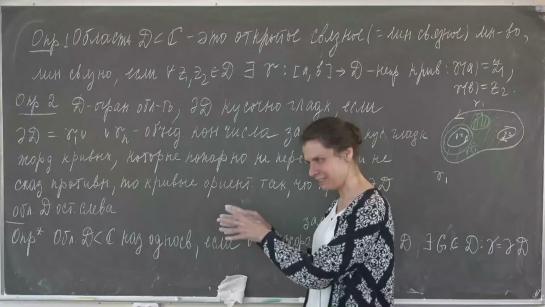 Опр 1 Область D ⊂ C - это открытое связное (= лин связное) мн-во,
лин связно, если ∀ z₁, z₂ ∈ D ∃ γ : [a, b] → D - непр крив : γ(a) = z₁,
γ(b) = z₂.
Опр 2 D - огран обл-ть, ∂D кусочно гладк, если
∂D = γ₁ ∪ γₙ - объед кон числа за кус. гладк
жорд кривых, которые попарно не пер не
так, что D
обл D ост слева
Опр* Обл D ⊂ C наз однос, если D, ∃ G ⊂ D : γ = ∂D
γ₁
γ₁